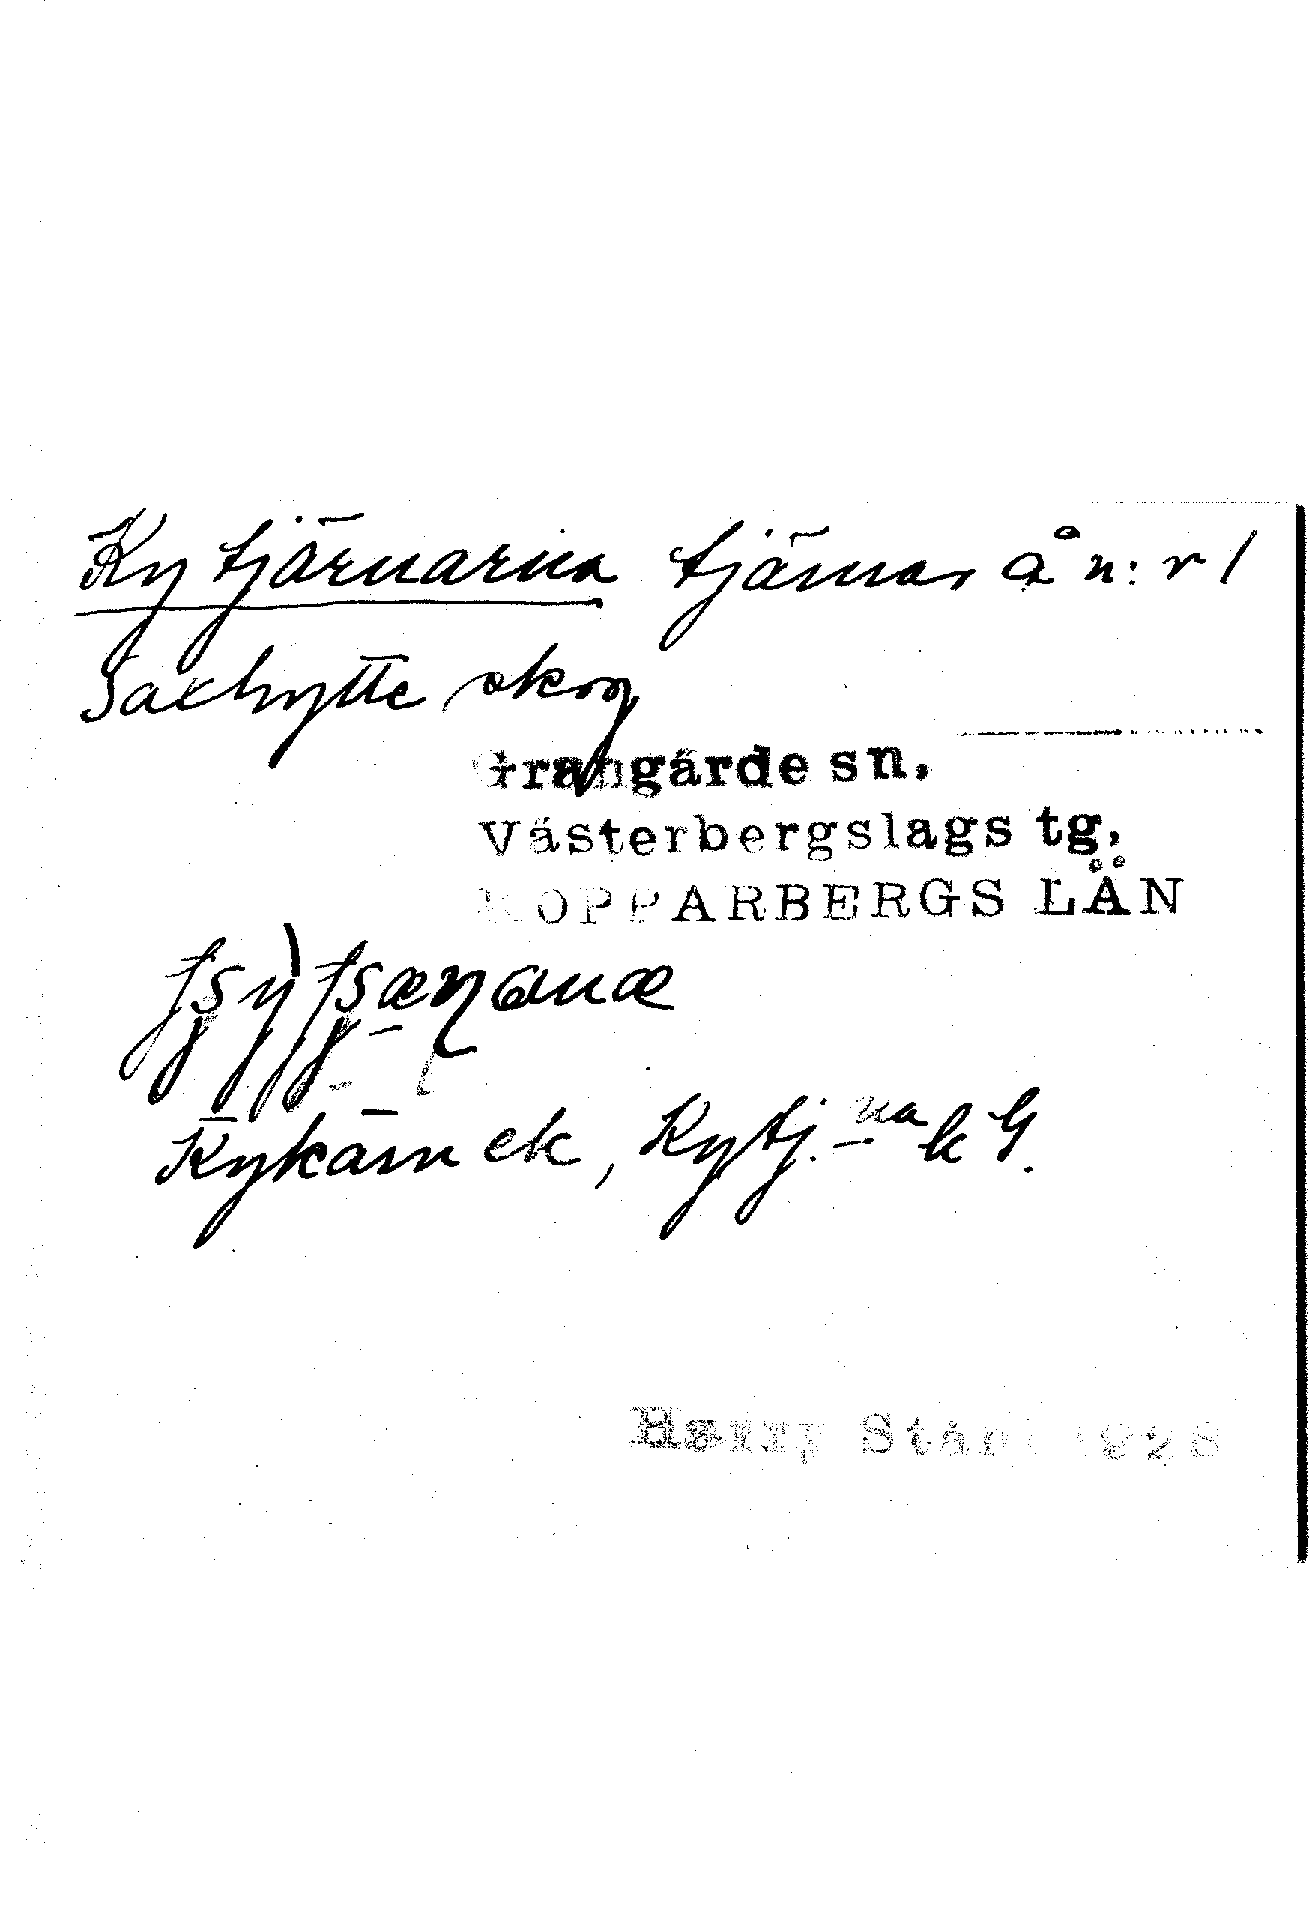 Kytjärnarna tjärnar å n: r 1
Saxhytte skog
Grangärde sn.
Västerbergslags tg.
KOPPARBERGS LÄN
Kykärn ek, Kytj.na k G.
Harry Ståhl 1928